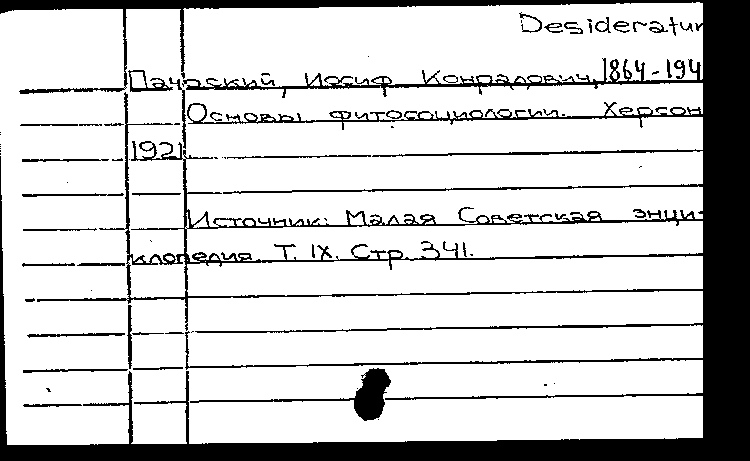 Desideratum
Пачоский, Иосиф Конрадович, 1864-194
Основы фитосоциологии. Херсон
1921
Источник: Малая Советская энци-
клопедия. Т. IX. Стр. 341.